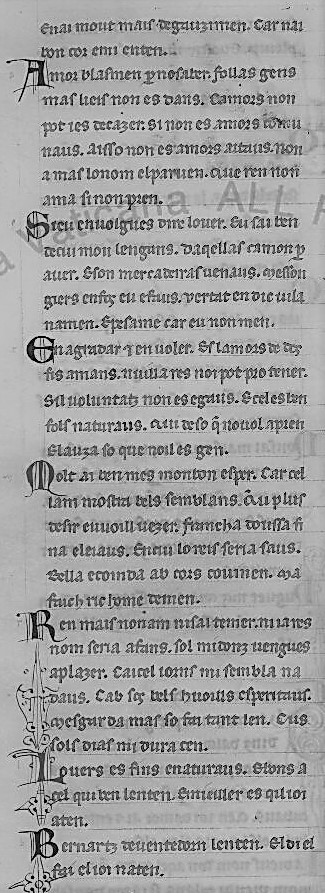 En ai mout mais de gauzimen. Car nai
bon cor em i enten.
Amor blasmen p nosaber. follas gens
mas lieis non es dans. Camors non
pot ies decazer. Si non es amors comu
naus. Aisso non es amors aitaus. non
a mas lonom el paruen. Que ren non
ama si non pren.
Sieu en uolgues dire louer. Eu sai ben
decui mou lenguans. Daqellas camon p
auer. E son mercadeiras uenaus. Messon
giers en fos eu efaus. uertat en dic uila
namen. E pesa me car eu non men.
En agradar & en uoler. Es lamors de dos
fis amans. nuilla res noi pot pro tener.
Sil uoluntatz non es egaus. E cel es ben
fols naturaus. Qui de so q uol la pren
E lauza so que noil es gen.
Molt ai ben mes mon bon esper. Car cel
lam mostra bels semblans. Qu plus
desir e uuoill uezer. francha doussa fi
na e leiaus. En cui lo reis seria saus.
Bella e coinda ab cors couinen. Ma
faich ric home de nien.
Ren mais non am ni sai temer. ni ia res
nom seria afans. sol midonz uengues
a plazer. Caicel iorns mi sembla na
daus. Cab sos bels huoills esperitaus.
mesgarda mas so fai tant len. Cus
sols dias mi dura cen.
Lo uers es fins e naturaus. E bons a
cel qui ben lenten. E meiller es qui ioi
aten.
Bernartz deuentedorn lenten. El di el
fai el ioi naten.